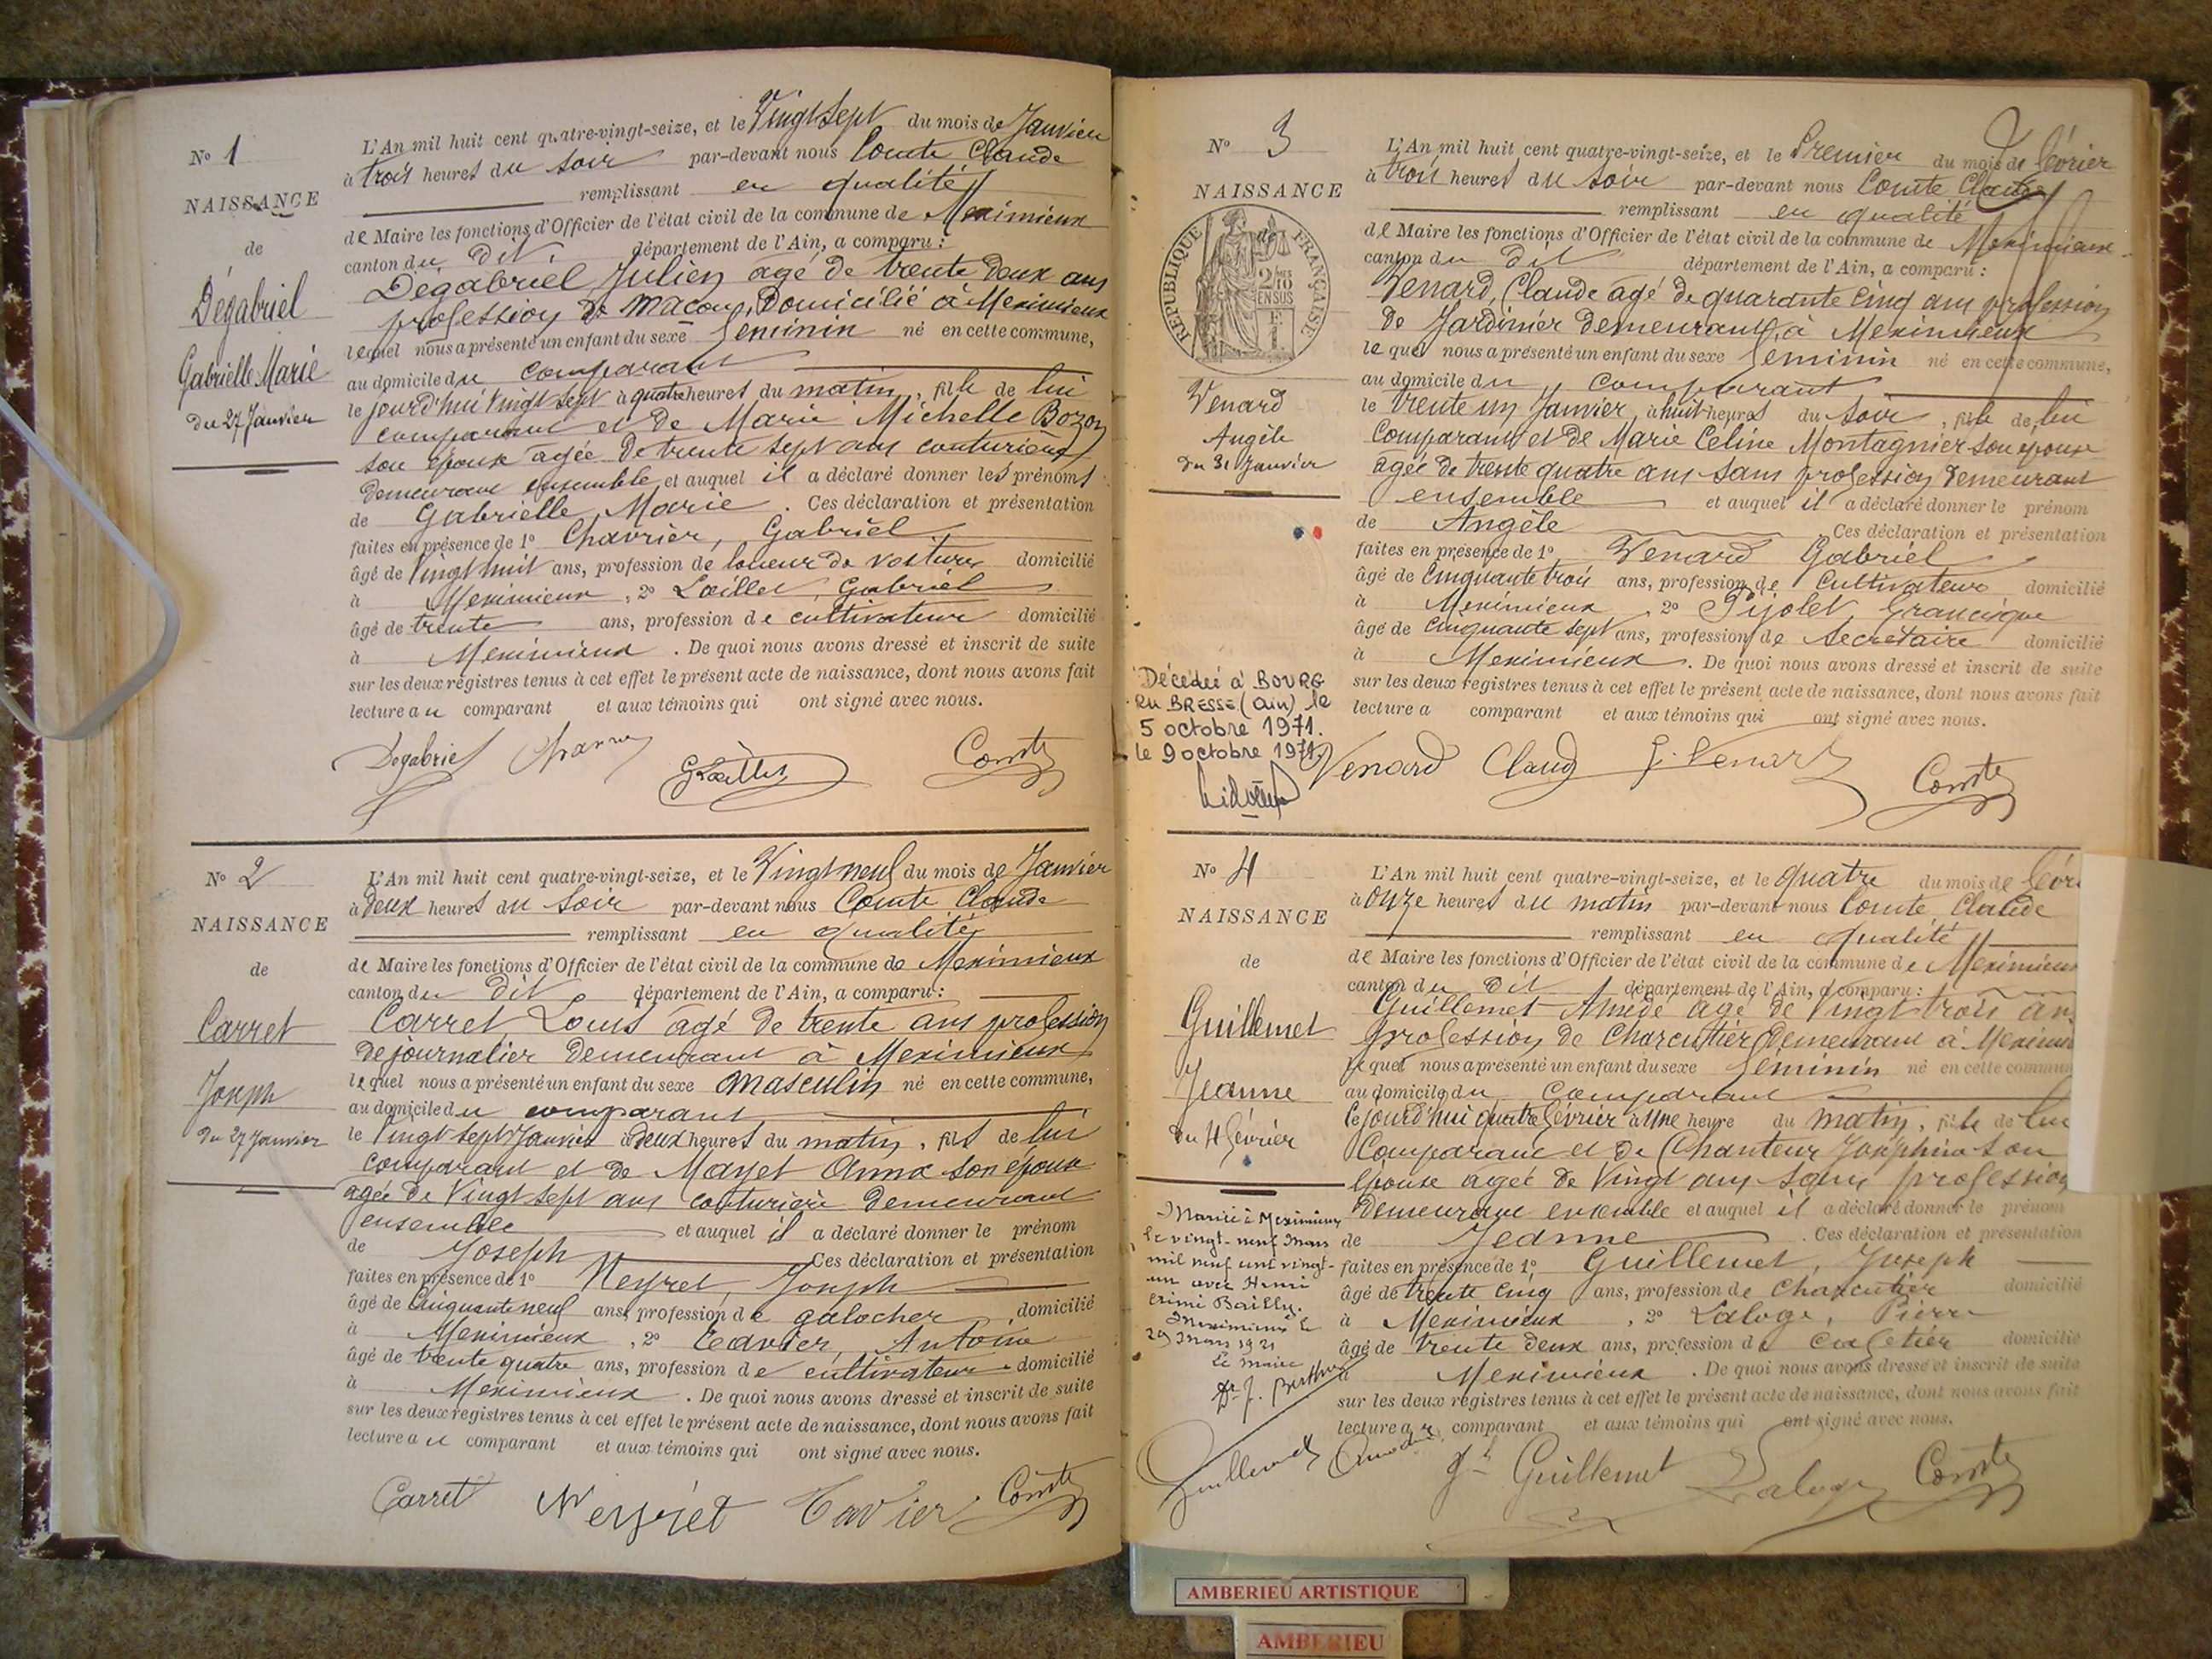 N° 1
NAISSANCE
de
Dégabriel
Gabrielle Marie
du 27 Janvier
L'An mil huit cent quatre-vingt-seize, et le Vingt sept du mois de Janvier
à trois heures du soir par-devant nous Comte Claude
remplissant en qualité
de Maire les fonctions d'Officier de l'état civil de la commune de Meximieux
canton du dit, département de l'Ain, a comparu :
Dégabriel Julien agé de trente deux ans
profession de maçon, Domicilié à Meximieux
lequel nous a présenté un enfant du sexe féminin né en cette commune,
au domicile du comparant
le jourd'hui vingt sept à quatre heures du matin, fille de lui
comparant et de Marie Michelle Bozon
son épouse agée de trente sept ans couturière
demeurant ensemble et auquel il a déclaré donner les prénoms
de Gabrielle Marie. Ces déclaration et présentation
faites en présence de 1° Chavrier, Gabriel
âgé de Vingt huit ans, profession de loueur de voitures domicilié
à Meximieux, 2° Lœillet, Gabriel
âgé de trente ans, profession de cultivateur domicilié
à Meximieux. De quoi nous avons dressé et inscrit de suite
sur les deux régistres tenus à cet effet le présent acte de naissance, dont nous avons fait
lecture au comparant et aux témoins qui ont signé avec nous.
Degabriel GLœillet Comte
N° 2
NAISSANCE
de
Carret
Joseph
du 27 Janvier
L'An mil huit cent quatre-vingt-seize, et le Vingt neuf du mois de Janvier
à deux heures du soir par-devant nous Comte Claude
remplissant en qualité
de Maire les fonctions d'Officier de l'état civil de la commune de Meximieux
canton du dit, département de l'Ain, a comparu :
Carret Louis agé de trente ans profession
de journalier demeurant à Meximieux
lequel nous a présenté un enfant du sexe masculin né en cette commune,
au domicile du comparant
le Vingt sept Janvier à deux heures du matin, fils de lui
comparant et de Mayet Anna son épouse
agée de Vingt sept ans couturière demeurant
ensemble et auquel il a déclaré donner le prénom
de Joseph Ces déclaration et présentation
faites en présence de 1° Neyret, Joseph
âgé de Cinquante neuf ans, profession de galocher domicilié
à Meximieux, 2° Tavier, Antoine
âgé de trente quatre ans, profession de cultivateur domicilié
à Meximieux. De quoi nous avons dressé et inscrit de suite
sur les deux régistres tenus à cet effet le présent acte de naissance, dont nous avons fait
lecture au comparant et aux témoins qui ont signé avec nous.
Carret Neyret Tavier Comte
N° 3
NAISSANCE
RÉPUBLIQUE FRANÇAISE
Venard
Angèle
du 31 Janvier
L'An mil huit cent quatre-vingt-seize, et le Premier du mois de février
à trois heures du soir par-devant nous Comte Claude
remplissant en qualité
de Maire les fonctions d'Officier de l'état civil de la commune de Meximieux
canton du dit département de l'Ain, a comparu :
Venard, Claude agé de quarante cinq ans profession
de Jardinier demeurant à Meximieux
lequel nous a présenté un enfant du sexe féminin né en cette commune,
au domicile du comparant
le trente un Janvier à huit heures du soir, fille de lui
comparant et de Marie Celine Montagnier son épouse
agée de trente quatre ans sans profession demeurant
ensemble et auquel il a déclaré donner le prénom
de Angèle Ces déclaration et présentation
faites en présence de 1° Venard Gabriel
âgé de Cinquante trois ans, profession de Cultivateur domicilié
à Meximieux, 2° Pijolet, Francisque
âgé de cinquante sept ans, profession de Secrétaire domicilié
à Meximieux. De quoi nous avons dressé et inscrit de suite
sur les deux régistres tenus à cet effet le présent acte de naissance, dont nous avons fait
lecture a comparant et aux témoins qui ont signé avec nous.
Décédée à BOURG
EN BRESSE (ain) le
5 octobre 1971.
le 9 octobre 1971.
Venard Claud G. Venard Comte
N° 4
NAISSANCE
de
Guillemet
Jeanne
du 4 février
L'An mil huit cent quatre-vingt-seize, et le quatre du mois de févr
à onze heures du matin par-devant nous Comte, Claude
remplissant en qualité
de Maire les fonctions d'Officier de l'état civil de la commune de Meximieux
canton du dit département de l'Ain, a comparu :
Guillemet Amédé agé de Vingt trois an
profession de Charcutier demeurant à Meximi
lequel nous a présenté un enfant du sexe féminin né en cette commun
au domicile du Comparant
le jourd'hui quatre février à une heure du matin, fille de lui
Comparant et de Chanteur Joséphine son
épouse agée de Vingt ans sans profession
demeurant ensemble et auquel il a déclaré donner le prénom
de Jeanne. Ces déclaration et présentation
faites en présence de 1° Guillemet, Joseph
âgé de trente cinq ans, profession de Charcutier domicilié
à Meximieux, 2° Laloge, Pierre
âgé de trente deux ans, profession de cafetier domicilié
à Meximieux. De quoi nous avons dressé et inscrit de suite
sur les deux régistres tenus à cet effet le présent acte de naissance, dont nous avons fait
lecture au comparant et aux témoins qui ont signé avec nous.
Mariée à Meximieux
le vingt-neuf Mars
mil neuf cent vingt-
un avec Henri
Bailly.
Meximieux le
29 Mars 1921
Le Maire
Dr J. Berthier
Guillemet Amédée Jh Guillemet Laloge Comte
AMBERIEU ARTISTIQUE
AMBERIEU